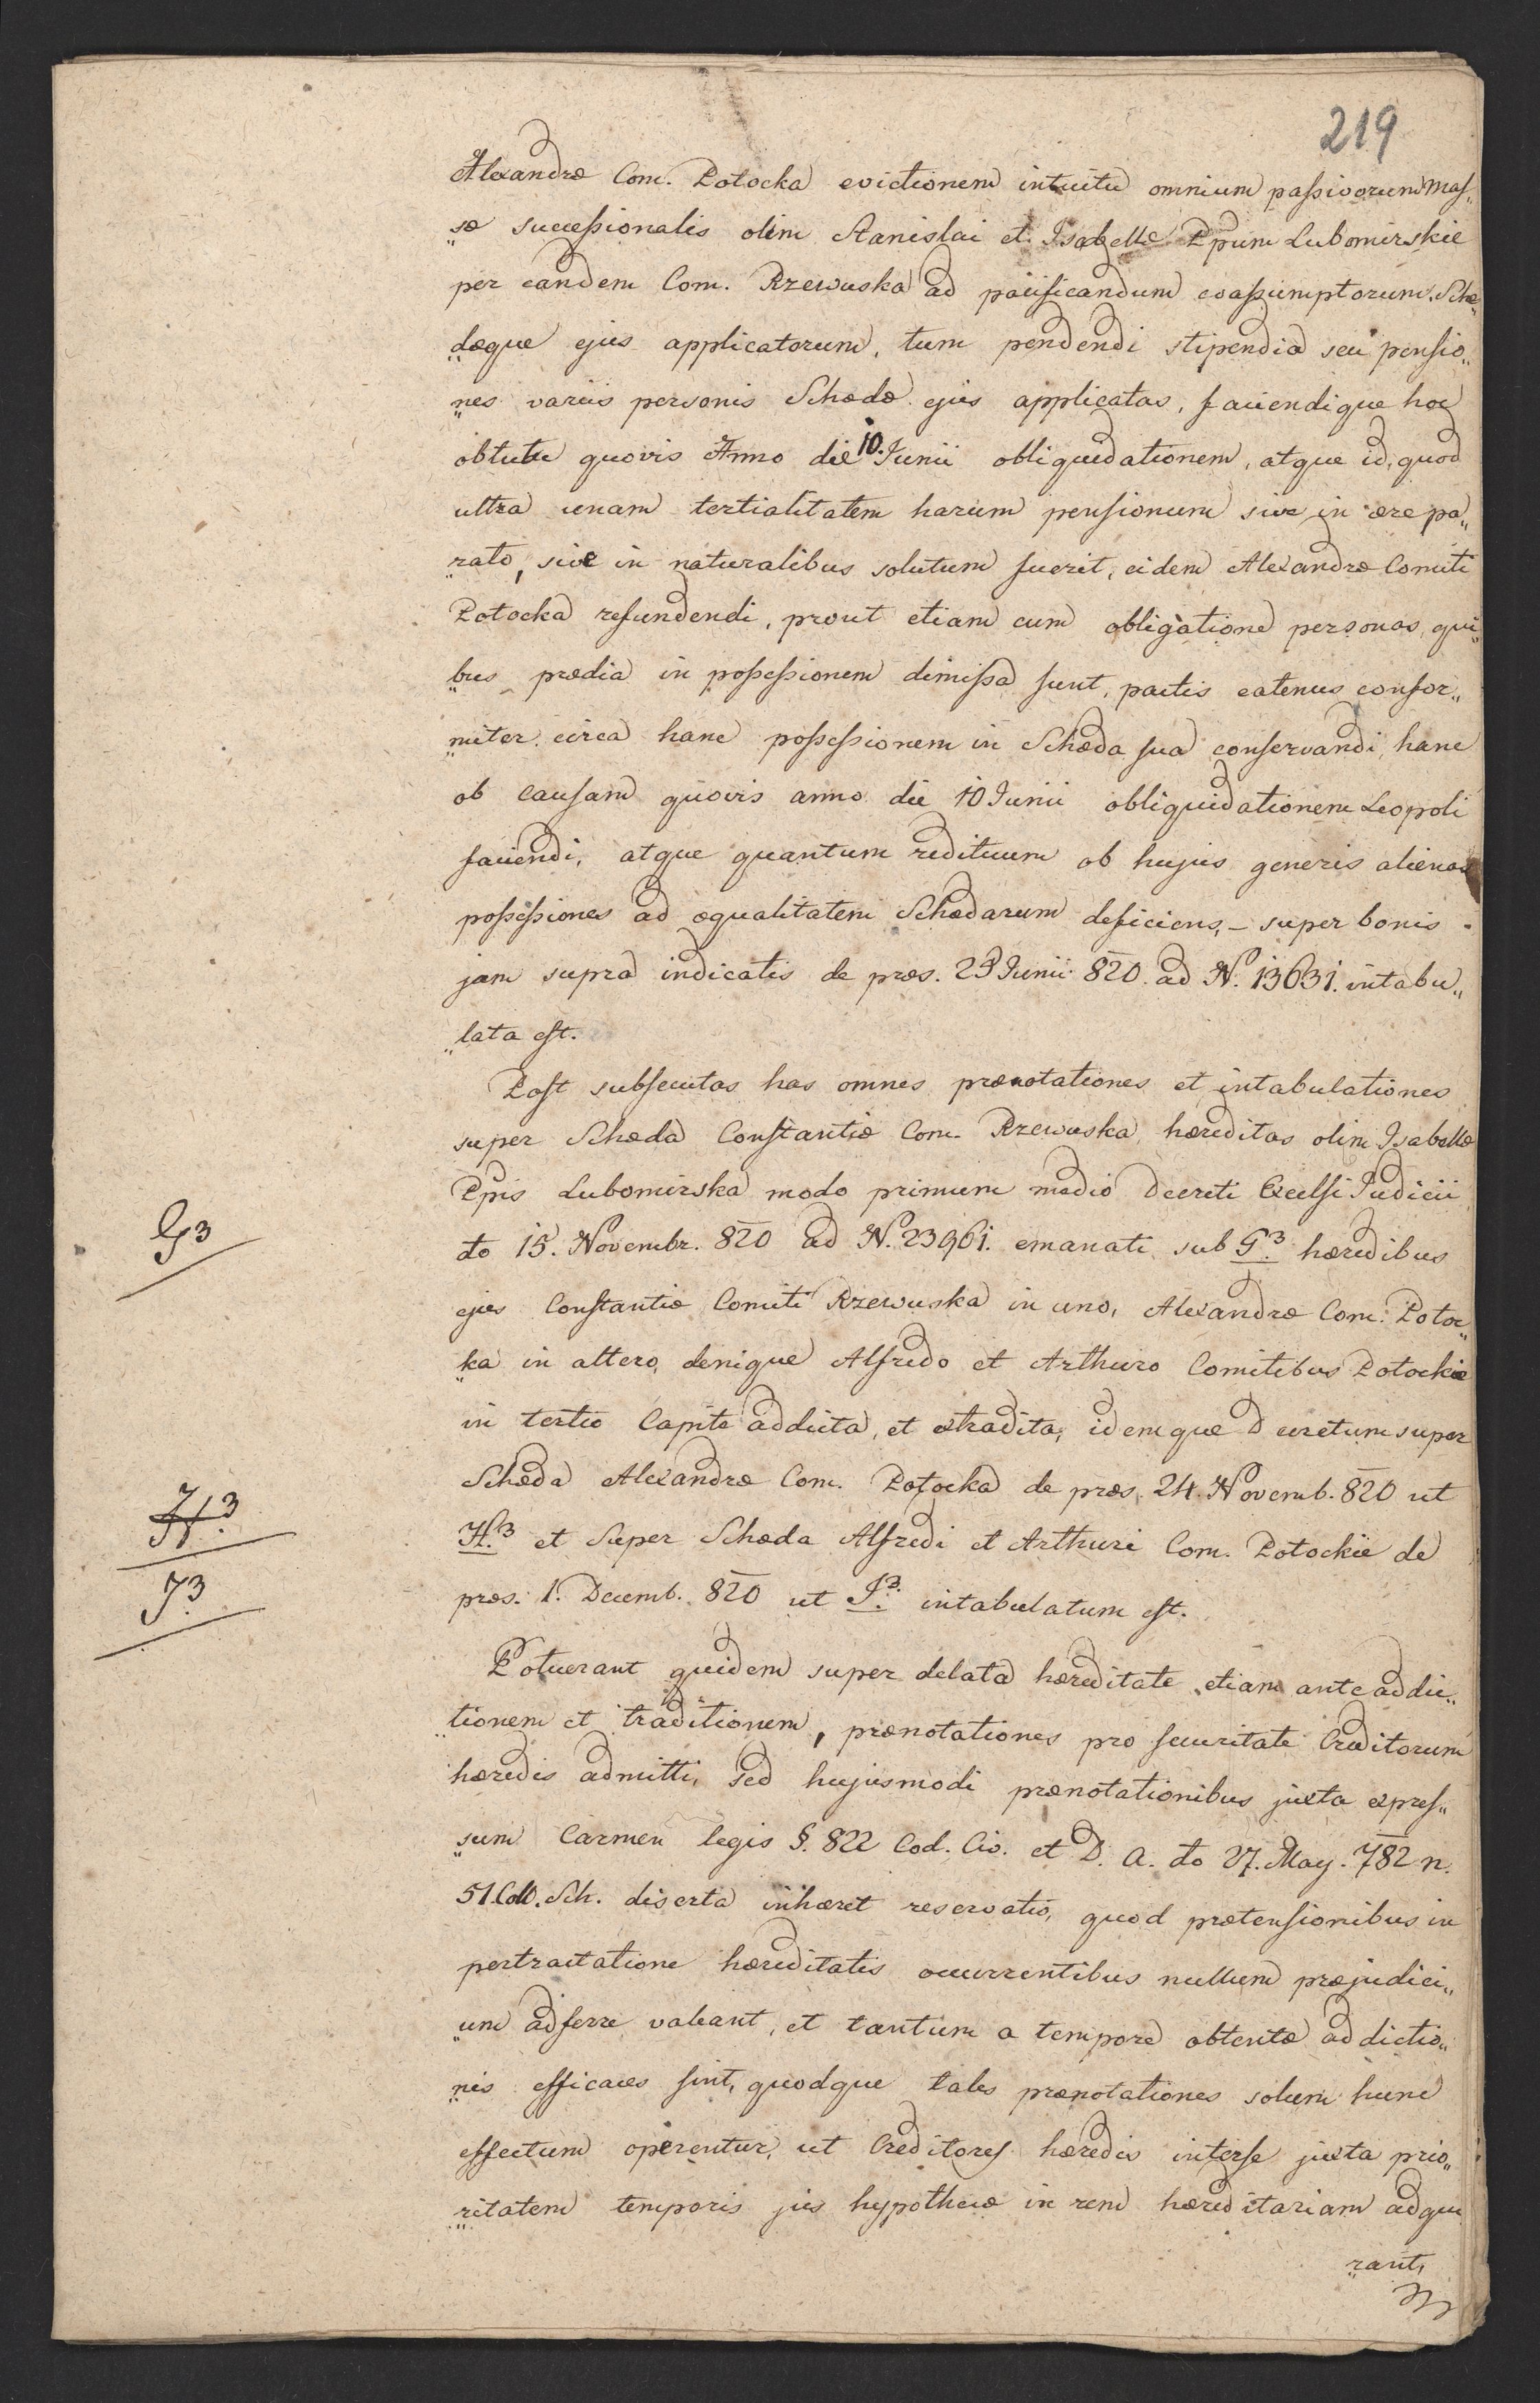 219
Alexandræ Com. Potocka evictionem intuitu omnium passivorum Mas„
„sæ successionalis olim Stanislai et Isabellæ Ppum Lubomirskie
per eandem Com. Rzewuska ad pacificandum coassumptorum, Sche„
„dæque ejus applicatorum, tum pendendi stipendia seu pensio„
„nes variis personis Schedæ ejus applicatas, faciendique hoc
obtutu quovis Anno die 10. Junii obliquidationem, atque id, quod
ultra unam tertialitatem harum pensionum sive in ære pa„
„rato, sive in naturalibus solutum fuerit, eidem Alexandræ Comiti
Potocka refundendi, prout etiam cum obligatione personas, qui„
„bus prædia in possessionem dimissa sunt, pactis eatenus confor„
„miter circa hanc possessionem in Scheda sua conservandi, hanc
ob causam quovis anno die 10 Junii obliquidationem Leopoli
faciendi, atque quantum redituum ob hujus generis alienas
possessiones ad æqualitatem Schedarum deficiens, – super bonis
jam supra indicatis de præs. 23 Junii 820. ad N. 13631. intabu„
„lata est.
Post subsecutas has omnes prænotationes et intabulationes
super Scheda Constantiæ Com. Rzewuska, hæreditas olim Isabellæ
Ppis Lubomirska modo primum medio Decreti Excelsi Judicii
do 15. Novembr. 820 ad N. 23961. emanati sub G.3 hæredibus
G3
ejus Constantiæ Comiti Rzewuska in uno, Alexandræ Com. Potoc„
„ka in altero, denique Alfredo et Arthuro Comitibus Potockie
in tertio Capite addicta, et extradita, idemque Decretum super
Scheda Alexandræ Com. Potocka de præs. 24 Novemb. 820 ut
H.3
H.3 et Super Scheda Alfredi et Arthuri Com. Potockie de
J3
præs. 1. Decemb. 820 ut J.3 intabulatum est.
Potuerant quidem super delata hæreditate etiam ante addic„
„tionem et traditionem, prænotationes pro securitate Creditorum
hæredis admitti, sed hujusmodi prænotationibus juxta expres„
„sum Carmen legis §. 822 Cod. Civ. et D. A. do 27. May. 782 n.
51. Coll. Sch. diserta inhæret reservatio, quod prætensionibus in
pertractatione hæreditatis occurrentibus nullum præjudici„
„um adferre valeant, et tantum a tempore obtentæ addictio„
„nis efficaces sint, quodque tales prænotationes solum hunc
effectum operentur, ut Creditores hæredis inter se juxta prio„
„ritatem temporis jus hypothecæ in rem hæreditariam adqui
„rant,